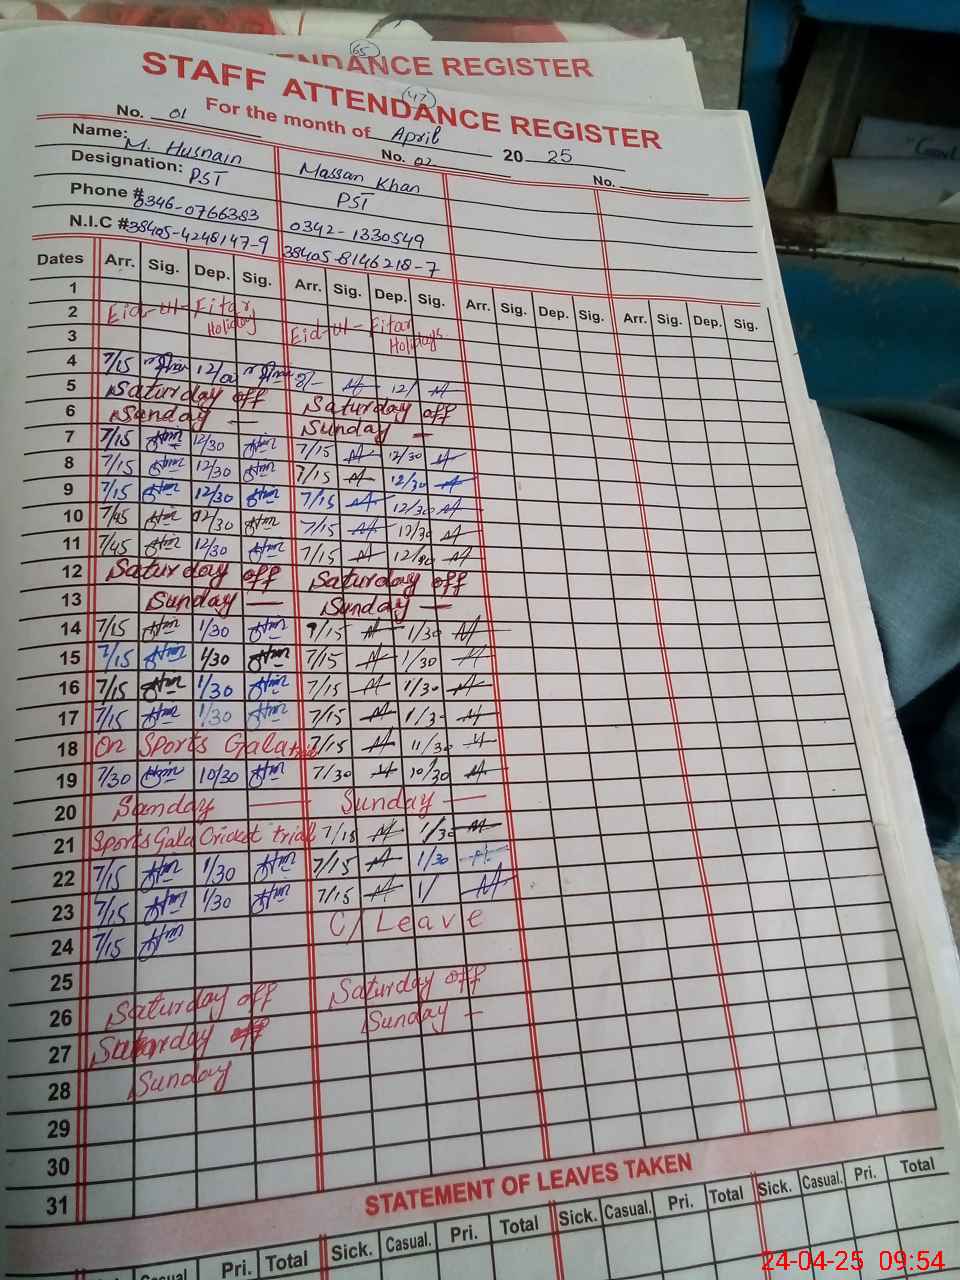 (65)
ENDANCE REGISTER
(47)
STAFF ATTENDANCE REGISTER
For the month of April 20 25
No. 01 No. 02 No.
Name: M. Husnain Massan Khan
Designation: PST PST
Phone # 0346-0766383 0342-1330549
N.I.C # 38405-4248147-9 38405-8146218-7
Dates Arr. Sig. Dep. Sig. Arr. Sig. Dep. Sig. Arr. Sig. Dep. Sig. Arr. Sig. Dep. Sig.
1
2 Eid-ul-Fitar Holiday Eid-ul-Fitar Holidays.
3
4 7/15 12/00 8/- 12/
5 Saturday off Saturday off
6 Sunday — Sunday —
7 7/15 12/30 7/15 12/30
8 7/15 12/30 7/15 12/30
9 7/15 12/30 7/15 12/30
10 7/45 12/30 7/15 12/30
11 7/45 12/30 7/15 12/30
12 Saturday off Saturday off
13 Sunday — Sunday —
14 7/15 1/30 7/15 1/30
15 7/15 1/30 7/15 1/30
16 7/15 1/30 7/15 1/30
17 7/15 1/30 7/15 1/3
18 On Sports Gala 7/15 11/30
19 7/30 10/30 7/30 10/30
20 Sunday — Sunday —
21 Sports Gala Cricket trial 7/15 1/30
22 7/15 1/30 7/15 1/30
23 7/15 1/30 7/15 1/
24 7/15 C/Leave
25
26 Saturday off Saturday off
27 Saturday off Sunday —
28 Sunday
29
30
31
STATEMENT OF LEAVES TAKEN
Casual. Pri. Total Sick. Casual. Pri. Total Sick. Casual. Pri. Total Sick. Casual. Pri. Total
24-04-25 09:54